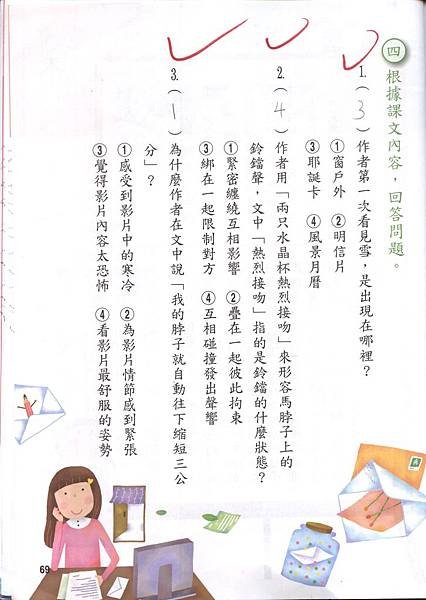 四 根據課文內容，回答問題。
1.（3）作者第一次看見雪，是出現在哪裡？
①窗戶外 ②明信片
③耶誕卡 ④風景月曆
2.（4）作者用「兩只水晶杯熱烈接吻」來形容馬脖子上的
鈴鐺聲，文中「熱烈接吻」指的是鈴鐺的什麼狀態？
①緊密纏繞互相影響 ②疊在一起彼此拘束
③綁在一起限制對方 ④互相碰撞發出聲響
3.（1）為什麼作者在文中說「我的脖子就自動往下縮短三公
分」？
①感受到影片中的寒冷 ②為影片情節感到緊張
③覺得影片內容太恐怖 ④看影片最舒服的姿勢
69